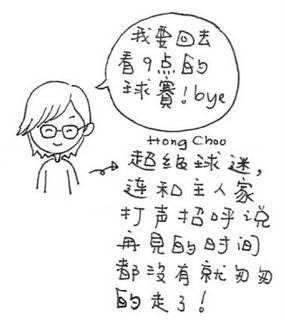 我要回去
看9点的
球賽!bye
Hong Choo
超级球迷,
连和主人家
打声招呼说
再見的时间
都没有就匆匆
的走了!